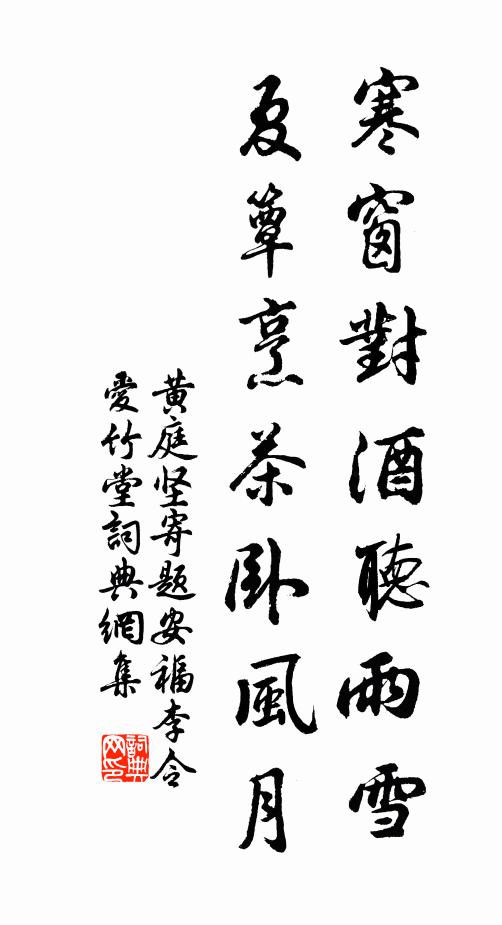 寒窗對酒聽雨雪
夏簟烹茶卧風月
黄庭坚寄题安福李令
爱竹堂詞典網集
詞典
网印